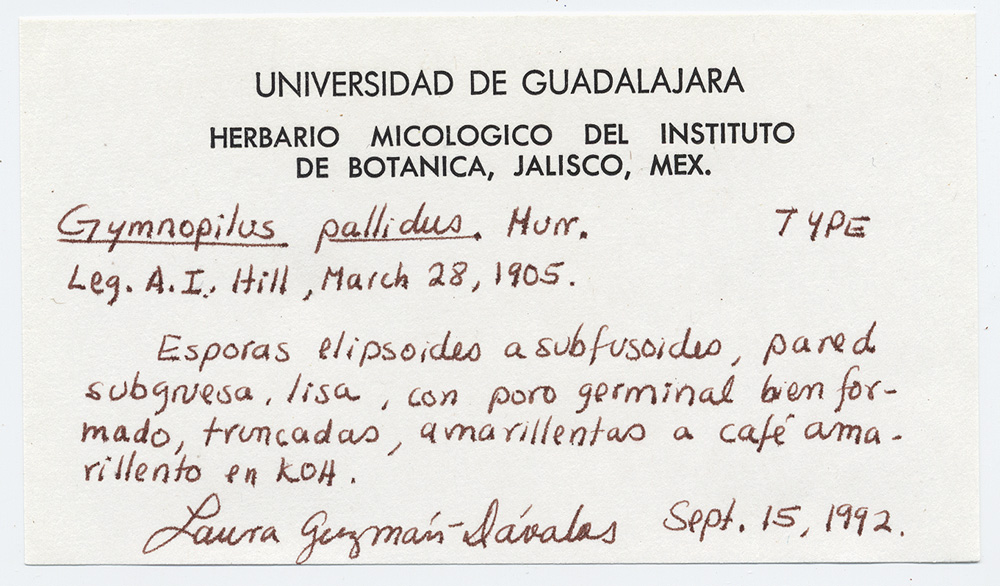 UNIVERSIDAD DE GUADALAJARA
HERBARIO MICOLOGICO DEL INSTITUTO
DE BOTANICA, JALISCO, MEX.
Gymnopilus pallidus. Murr. TYPE
Leg. A.I. Hill, March 28, 1905.
Esporas elipsoides a subfusoides, pared
subgruesa, lisa, con poro germinal bien for-
mado, truncadas, amarillentas a café ama-
rillento en KOH.
Laura Guzmán-Dávalos Sept. 15, 1992.